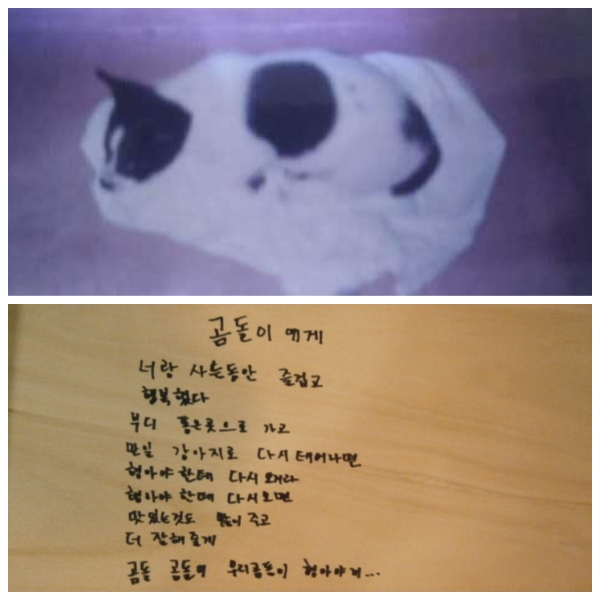 곰돌이 에게
너랑 사는동안 즐겁고
행복했다
부디 좋은곳으로 가고
만일 강아지로 다시 태어나면
형아야 한테 다시 와라
형아야 한테 다시오면
맛있는것도 많이 주고
더 잘해줄게
곰돌 곰돌이 우리곰돌이 형아야가...